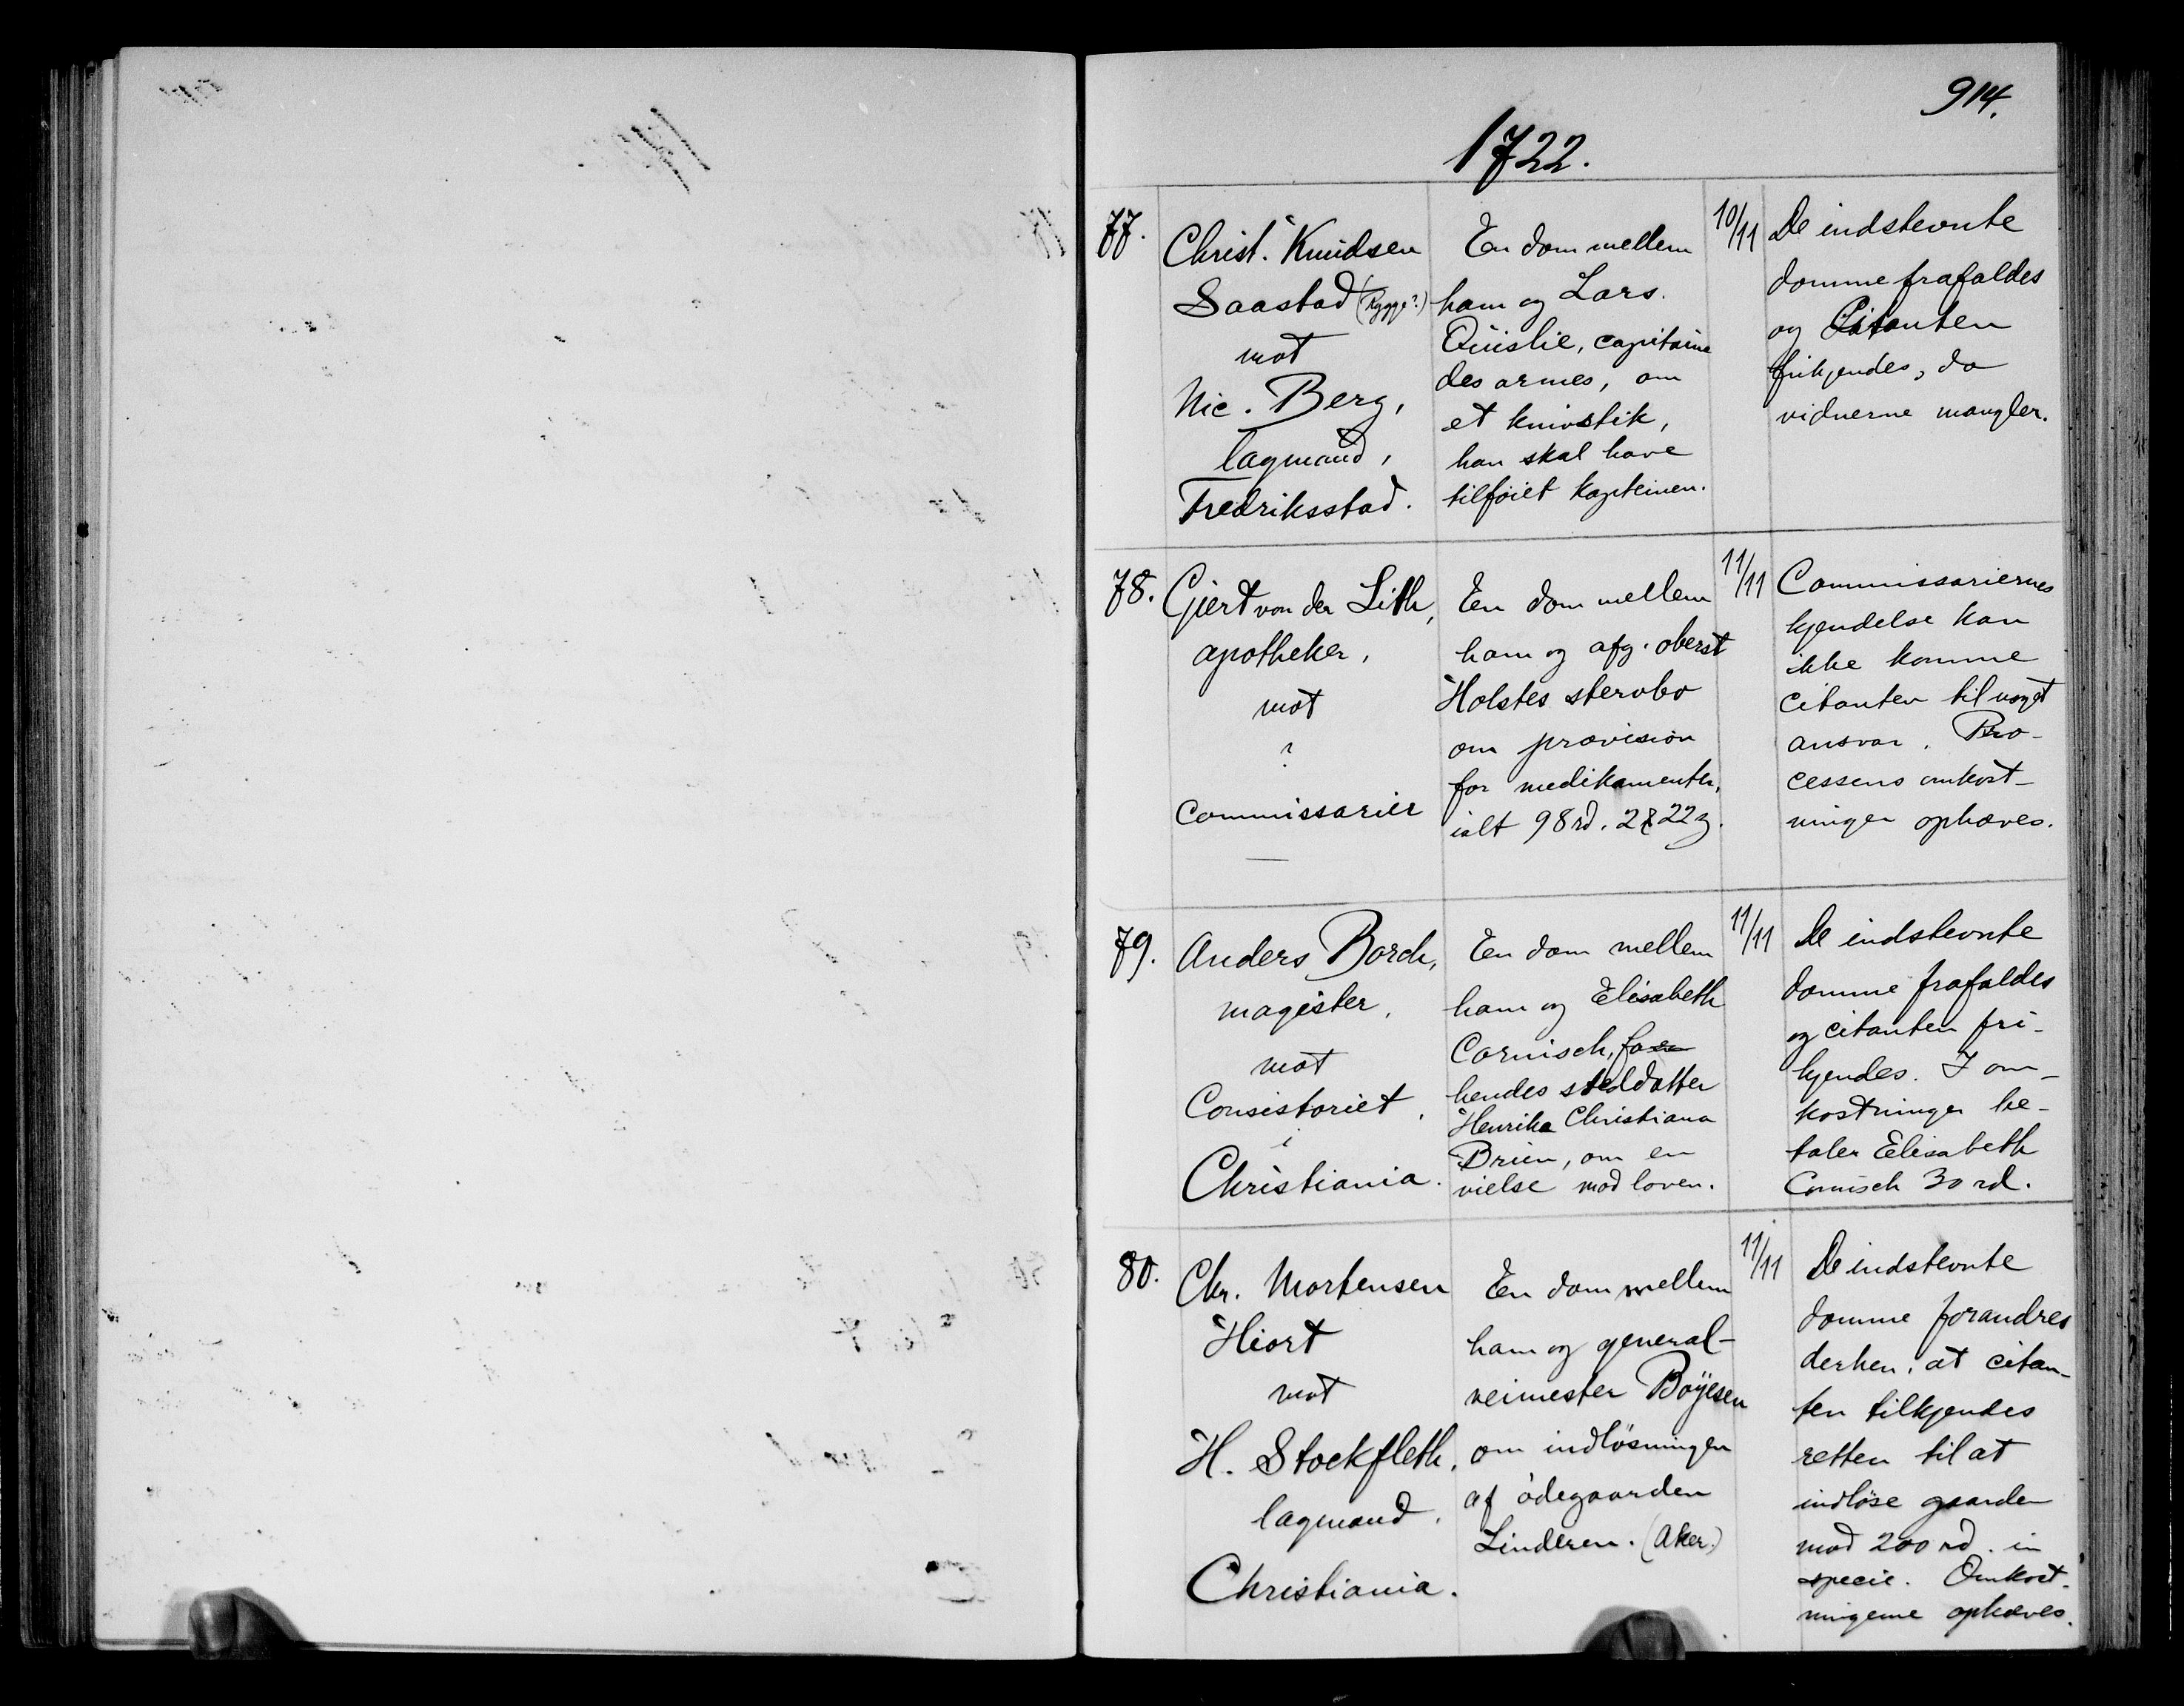 914.
1722.
77.
Christ. Knudsen
Saastad (Rygge?)
mot
Nic. Berg,
lagmand,
Fredriksstad.
En dom mellem
ham og Lars
Qvislie, capitaine
des armes, om
et knivstik,
han skal have
tilføiet kapteinen.
10/11
De indstevnte
domme frafaldes
og Citanten
frikjendes, da
vidnerne mangler.
78.
Gjert von der Lith,
apotheker,
mot
?
Commissarier
En dom mellem
ham og afg. oberst
Holstes stervbo
om provision
for medikamenter,
ialt 98 rd. 2 22
11/11
Commissariernes
kjendelse kan
ikke komme
citanten til noget
ansvar. Pro-
cessens omkost-
ninger ophæves.
79.
Anders Borch,
magister,
mot
Consistoriet,
i
Christiania.
En dom mellem
ham og Elisabeth
Cornisch,
hendes steddatter
Henrika Christiana
Brien, om en
vielse mod loven.
11/11
De indstevnte
domme frafaldes
og citanten fri-
kjendes. I om-
kostninger be-
taler Elisabeth
Cornisch 30 rd.
80.
Chr. Mortensen
Hiort
mot
H. Stockfleth,
lagmand.
Christiania.
En dom mellem
ham og general-
veimester Boÿesen
om indløsningen
af ødegaarden
Linderen. (Aker.)
11/11
De indstevnte
domme forandres
derhen, at citan-
ten tilkjendes
retten til at
indløse gaarden
mod 200 rd. in
specie. Omkost-
ningerne ophæves.